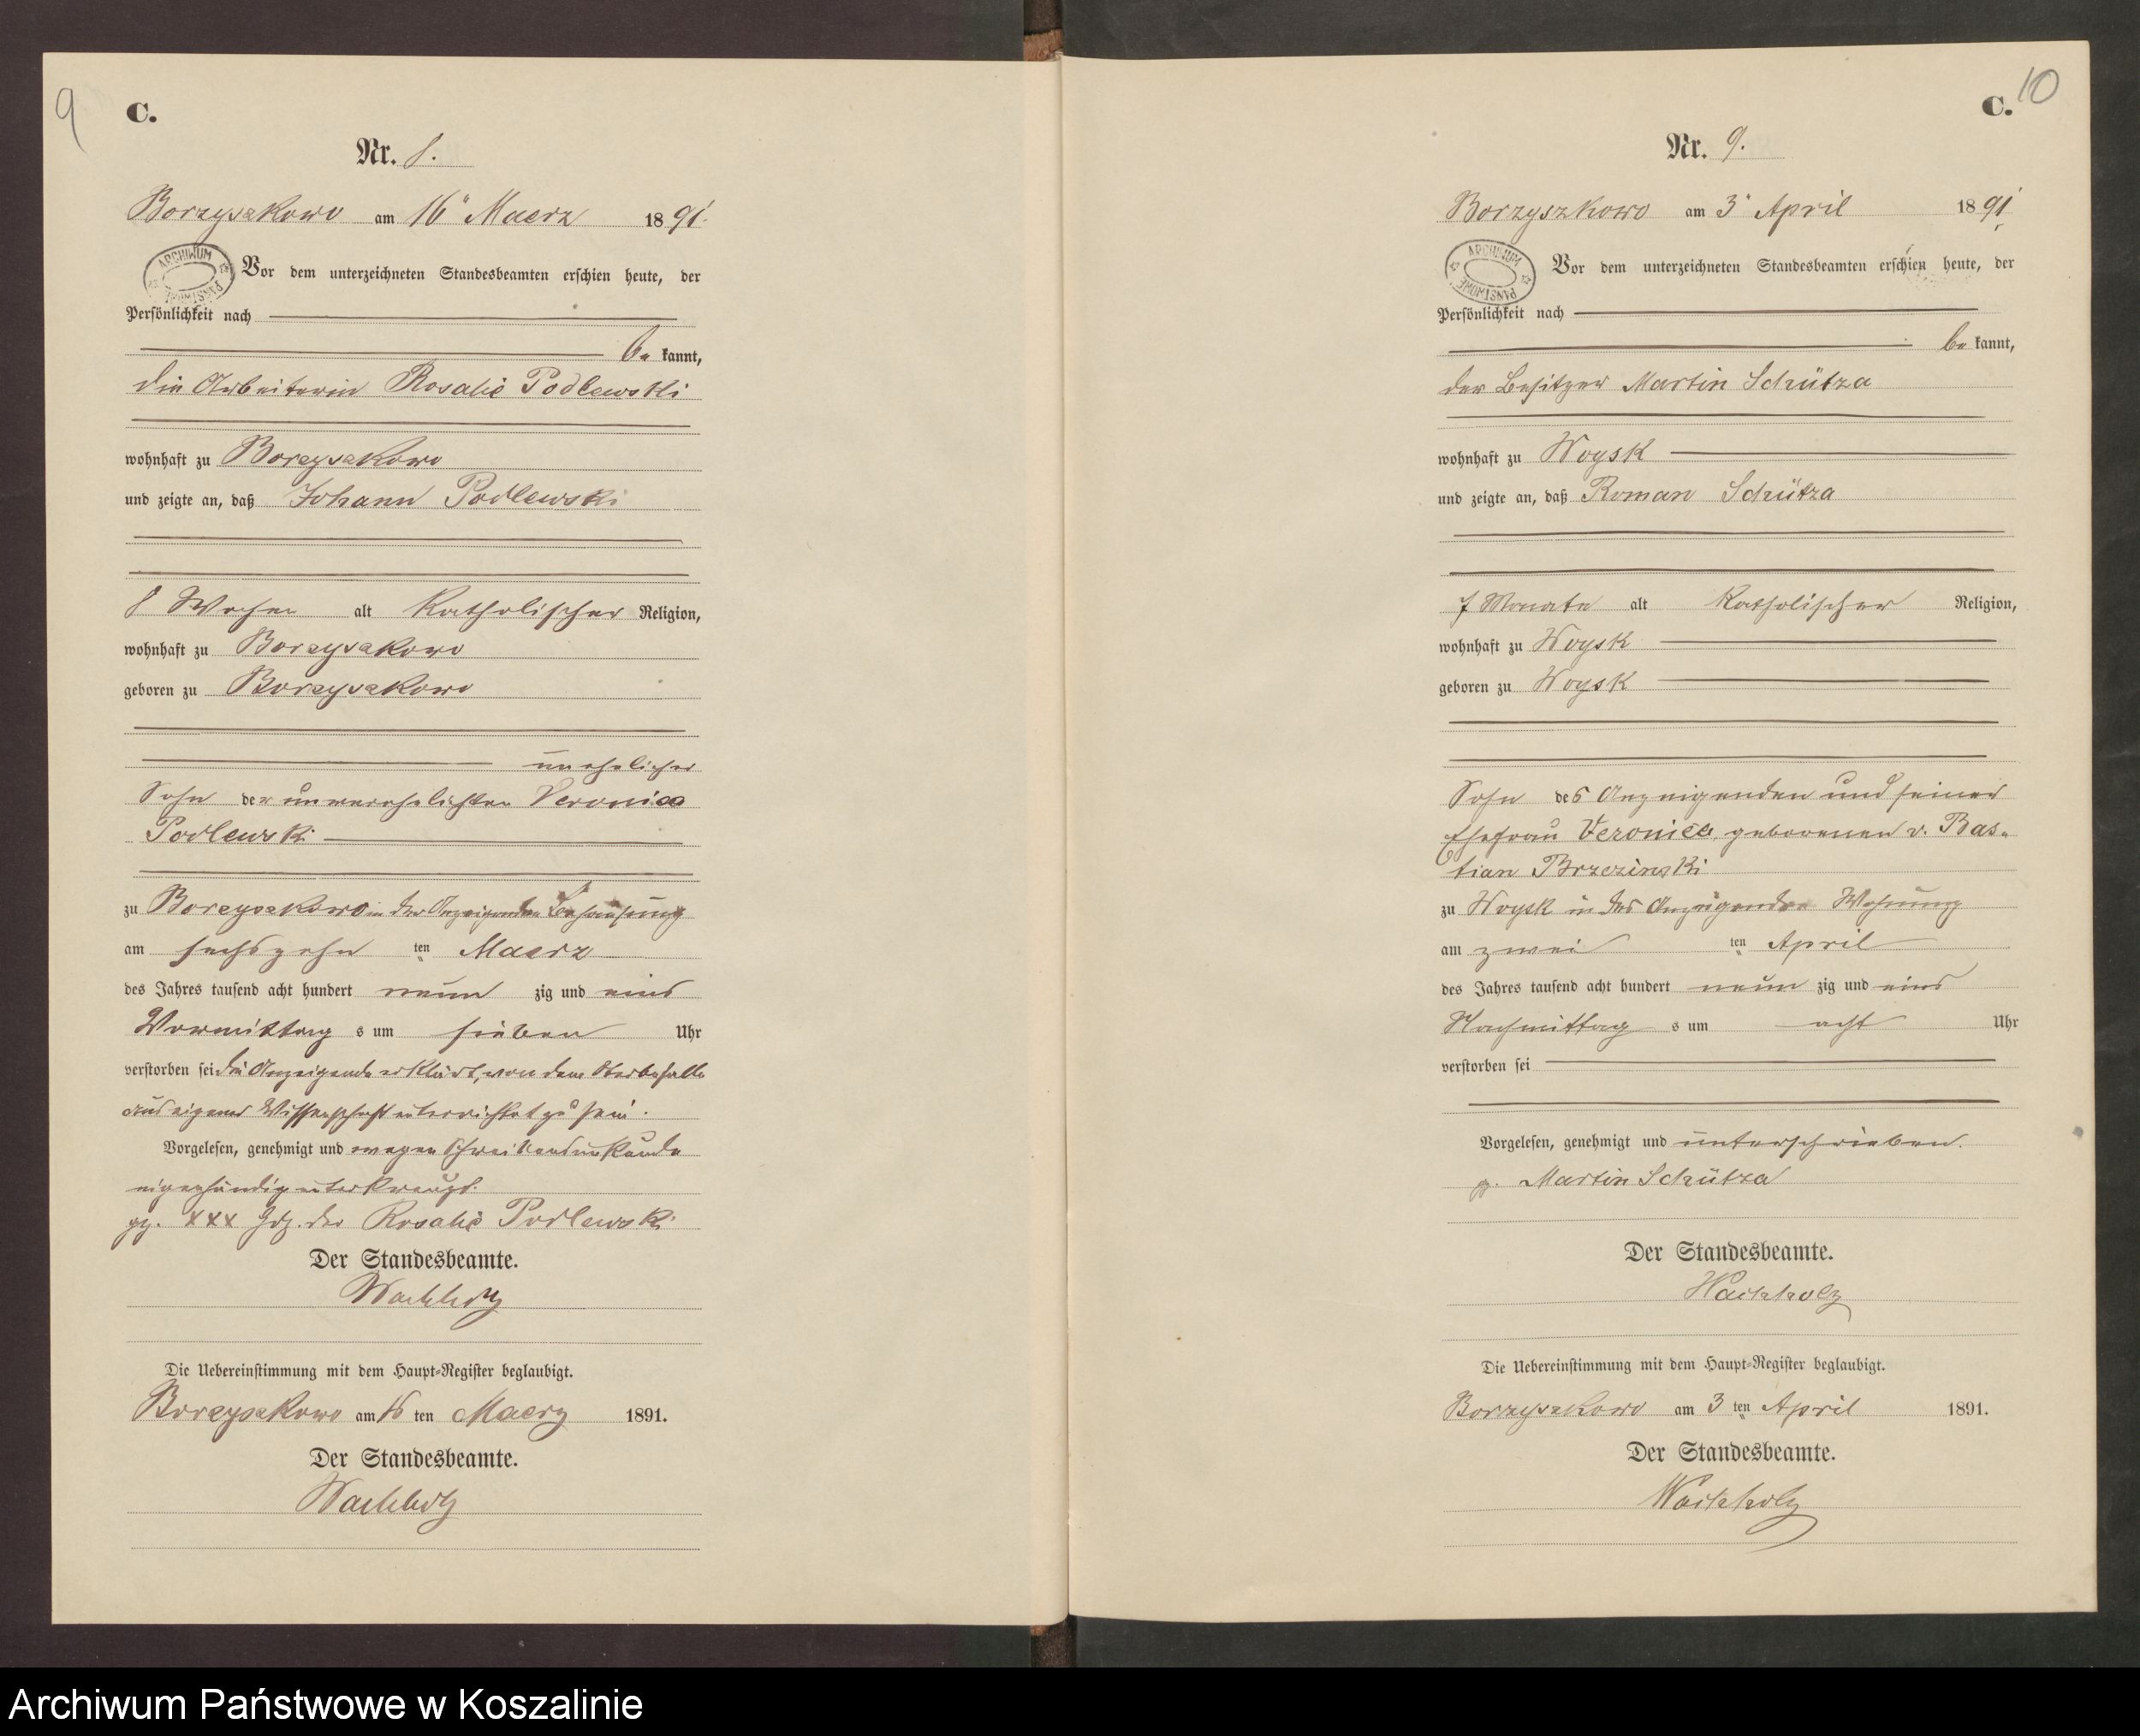 9
C.
Nr. 8.
Borzyszkowo am 16" Maerz 1891.
ARCHIWUM PAŃSTWOWE
Vor dem unterzeichneten Standesbeamten erschien heute, der
Persönlichkeit nach
be kannt,
die Arbeiterin Rosalie Podlewski
wohnhaft zu Borzyszkowo
und zeigte an, daß Johann Podlewski
8 Wochen alt katholischer Religion,
wohnhaft zu Borzyszkowo
geboren zu Borzyszkowo
unehelicher
Sohn der unverehelichten Veronica
Podlewski
zu Borzyszkowo in der Anzeigenden Behausung
am sechszehn ten Maerz
des Jahres tausend acht hundert neun zig und eins
Vormittag s um sieben Uhr
verstorben sei die Anzeigende erklärt, von dem Sterbefalle
aus eigener Wissenschaft unterrichtet zu sein.
Vorgelesen, genehmigt und wegen Schreibensunkunde
eigenhändig unterkreuzt.
gz. XXX Hdz. der Rosalie Podlewski
Der Standesbeamte.
Wachholz
Die Uebereinstimmung mit dem Haupt-Register beglaubigt.
Borzyszkowo am 16 ten Maerz 1891.
Der Standesbeamte.
Wachholz
10
C.
Nr. 9.
Borzyszkowo am 3" April 1891
ARCHIWUM PAŃSTWOWE
Vor dem unterzeichneten Standesbeamten erschien heute, der
Persönlichkeit nach
be kannt,
der Besitzer Martin Schütza
wohnhaft zu Woysk
und zeigte an, daß Roman Schütza
7 Monate alt katholischer Religion,
wohnhaft zu Woysk
geboren zu Woysk
Sohn des Anzeigenden und seiner
Ehefrau Veronica, geborenen v. Bas-
tian Brzezinski
zu Woysk in des Anzeigenden Wohnung
am zwei ten April
des Jahres tausend acht hundert neun zig und eins
Nachmittag s um acht Uhr
verstorben sei
Vorgelesen, genehmigt und unterschrieben.
g. Martin Schütza
Der Standesbeamte.
Wachholz
Die Uebereinstimmung mit dem Haupt-Register beglaubigt.
Borzyszkowo am 3 ten April 1891.
Der Standesbeamte.
Wachholz
Archiwum Państwowe w Koszalinie